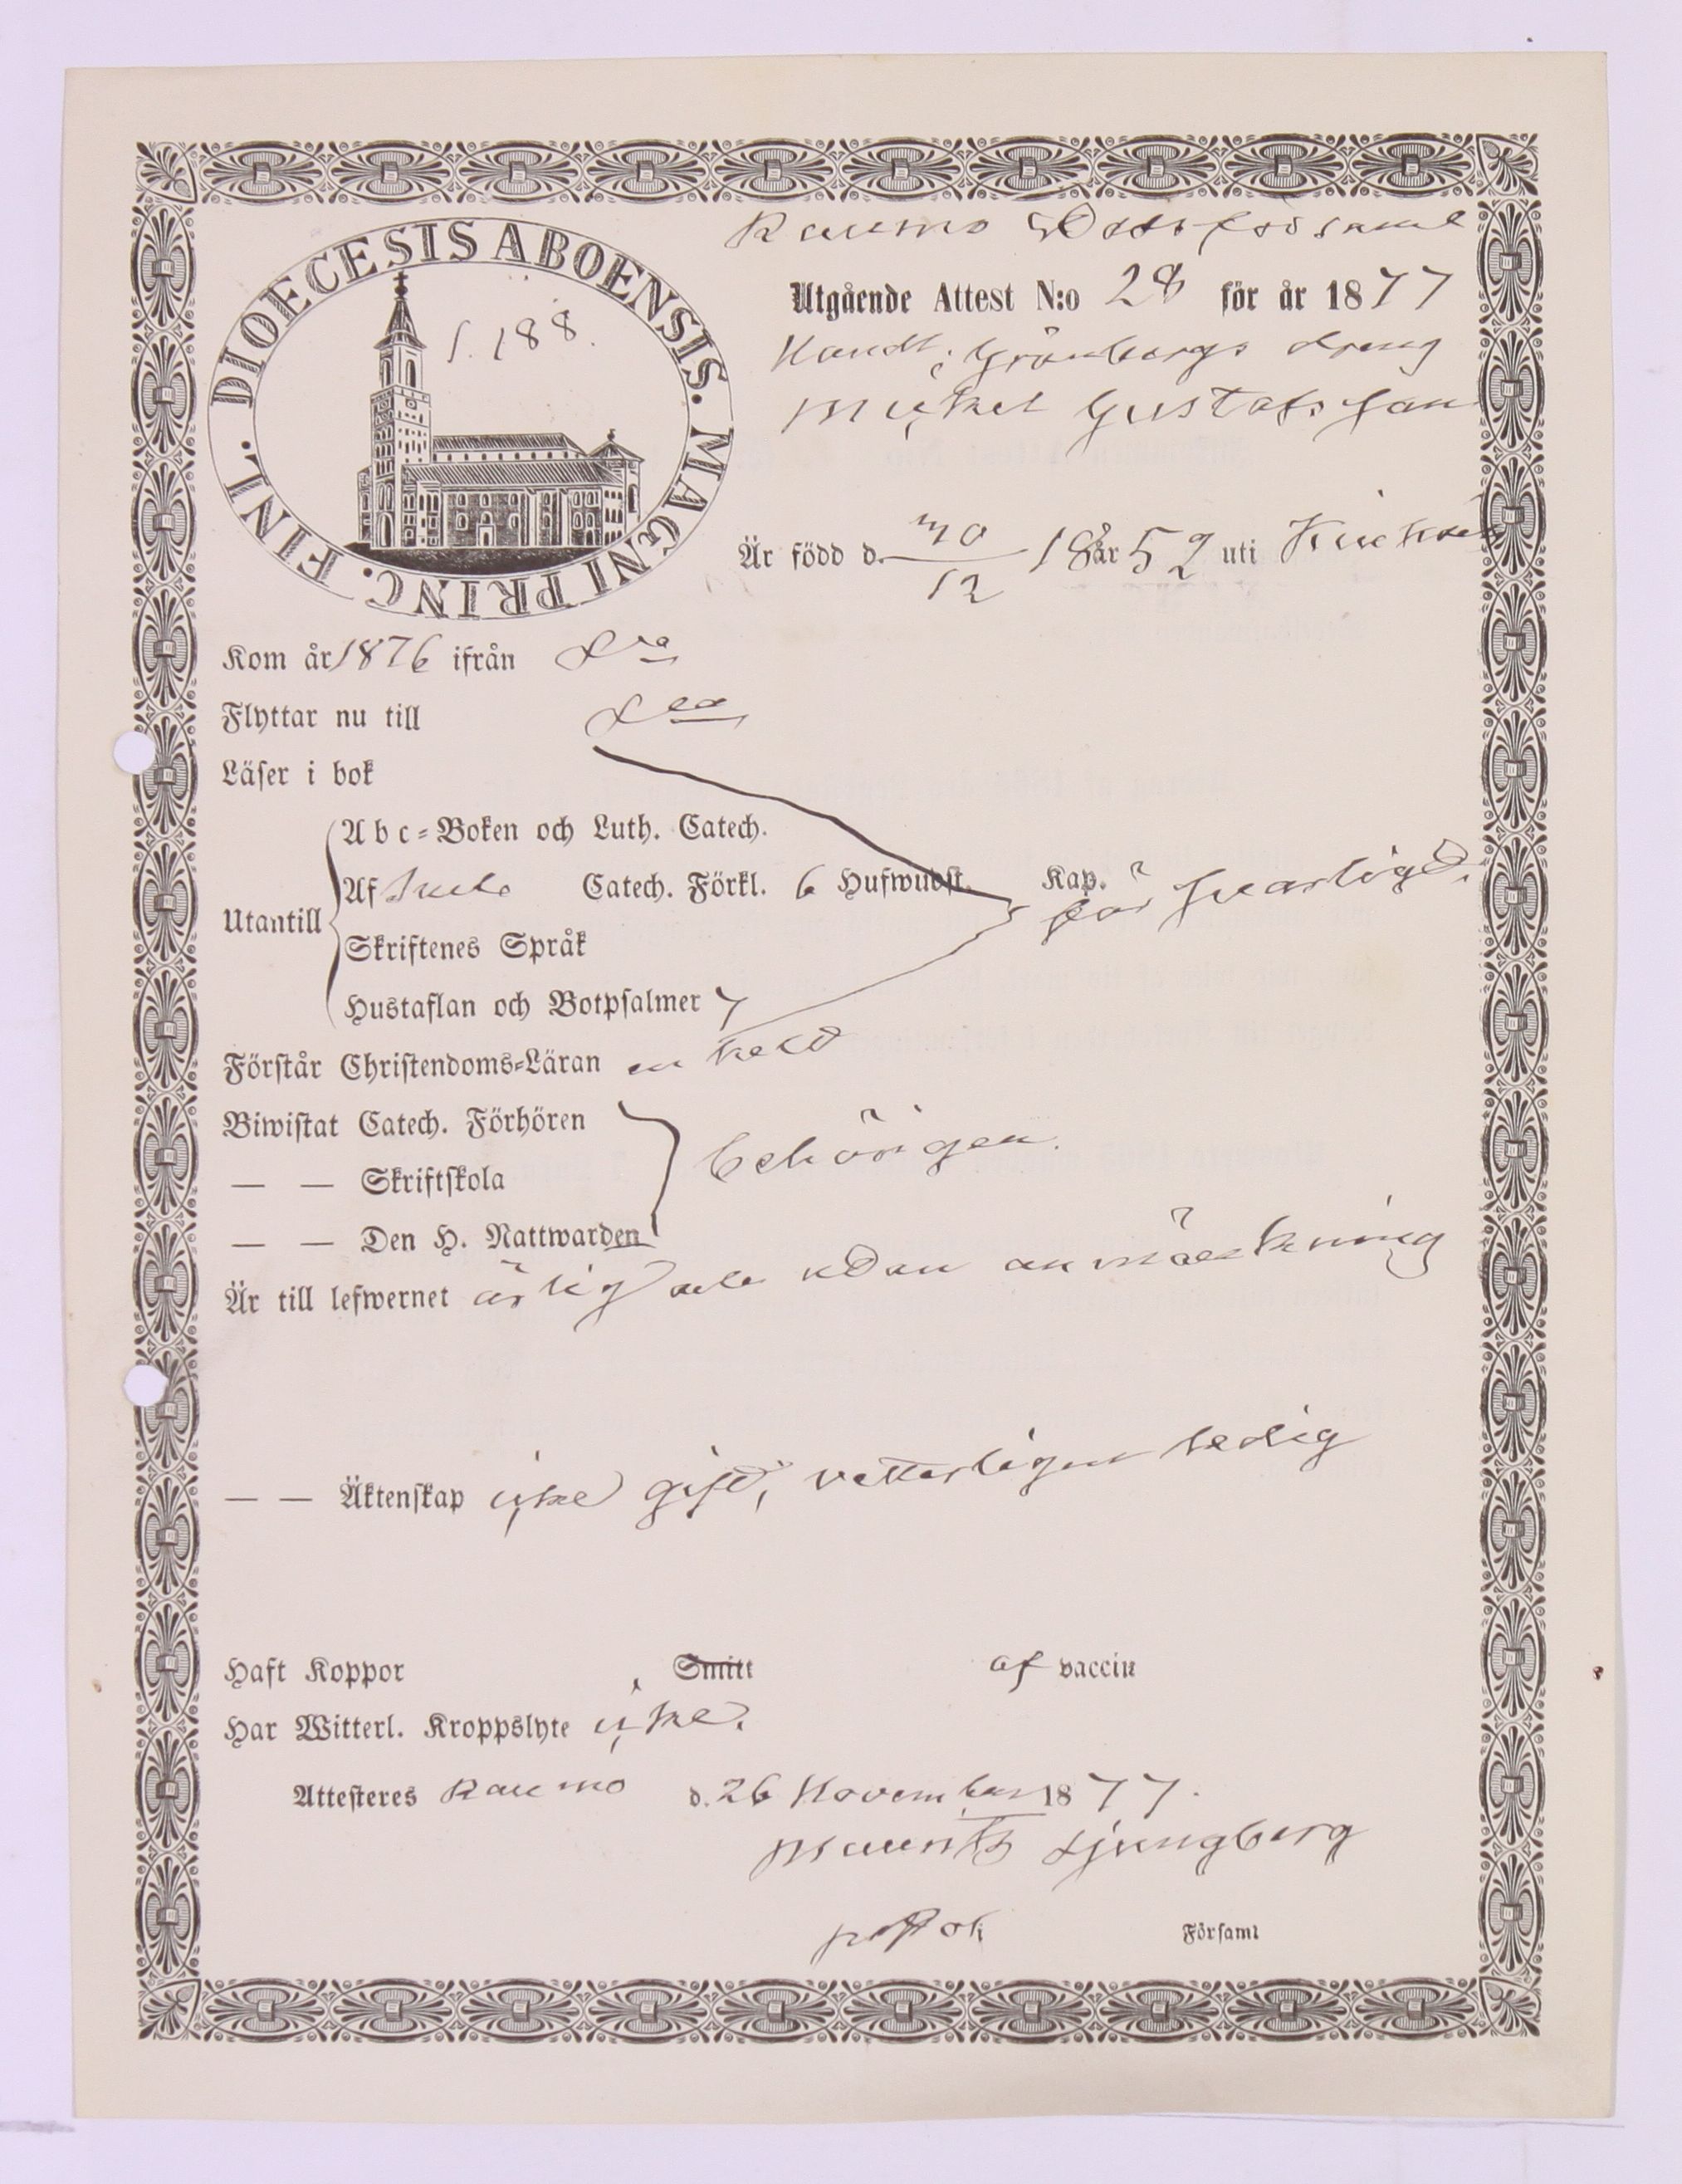 DIOECESIS ABOENSIS. MAGNI PRINC. FINL.
S. 188.
Raumo Stadsförsaml
Utgående Attest N:o 28 för år 1877
Handl: Grönbergs dreng
Mickel Gustafsson
Är född d. 30/12 18 år 52 uti
Kom år 1876 ifrån
Flyttar nu till
Läser i bok
Utantill
Abc=Boken och Luth. Catech.
Af Svebe Catech. Förkl. 6 Hufwudst. Kap.
försvarligt.
Skriftenes Språk
Hustaflan och Botpsalmer 7
Förstår Christendoms=Läran enkelt
Biwistat Catech. Förhören
— — Skriftskola
behörigen.
— — Den H. Nattwarden
Är till lefwernet ärlig och utan anmärkning
— — Äktenskap icke gift, vetterligen ledig
Haft Koppor Smitt af vaccin
Har Witterl. Kroppslyte icke.
Attesteres Raumo d. 26 November 1877.
Mauritz Ljungberg
Församl